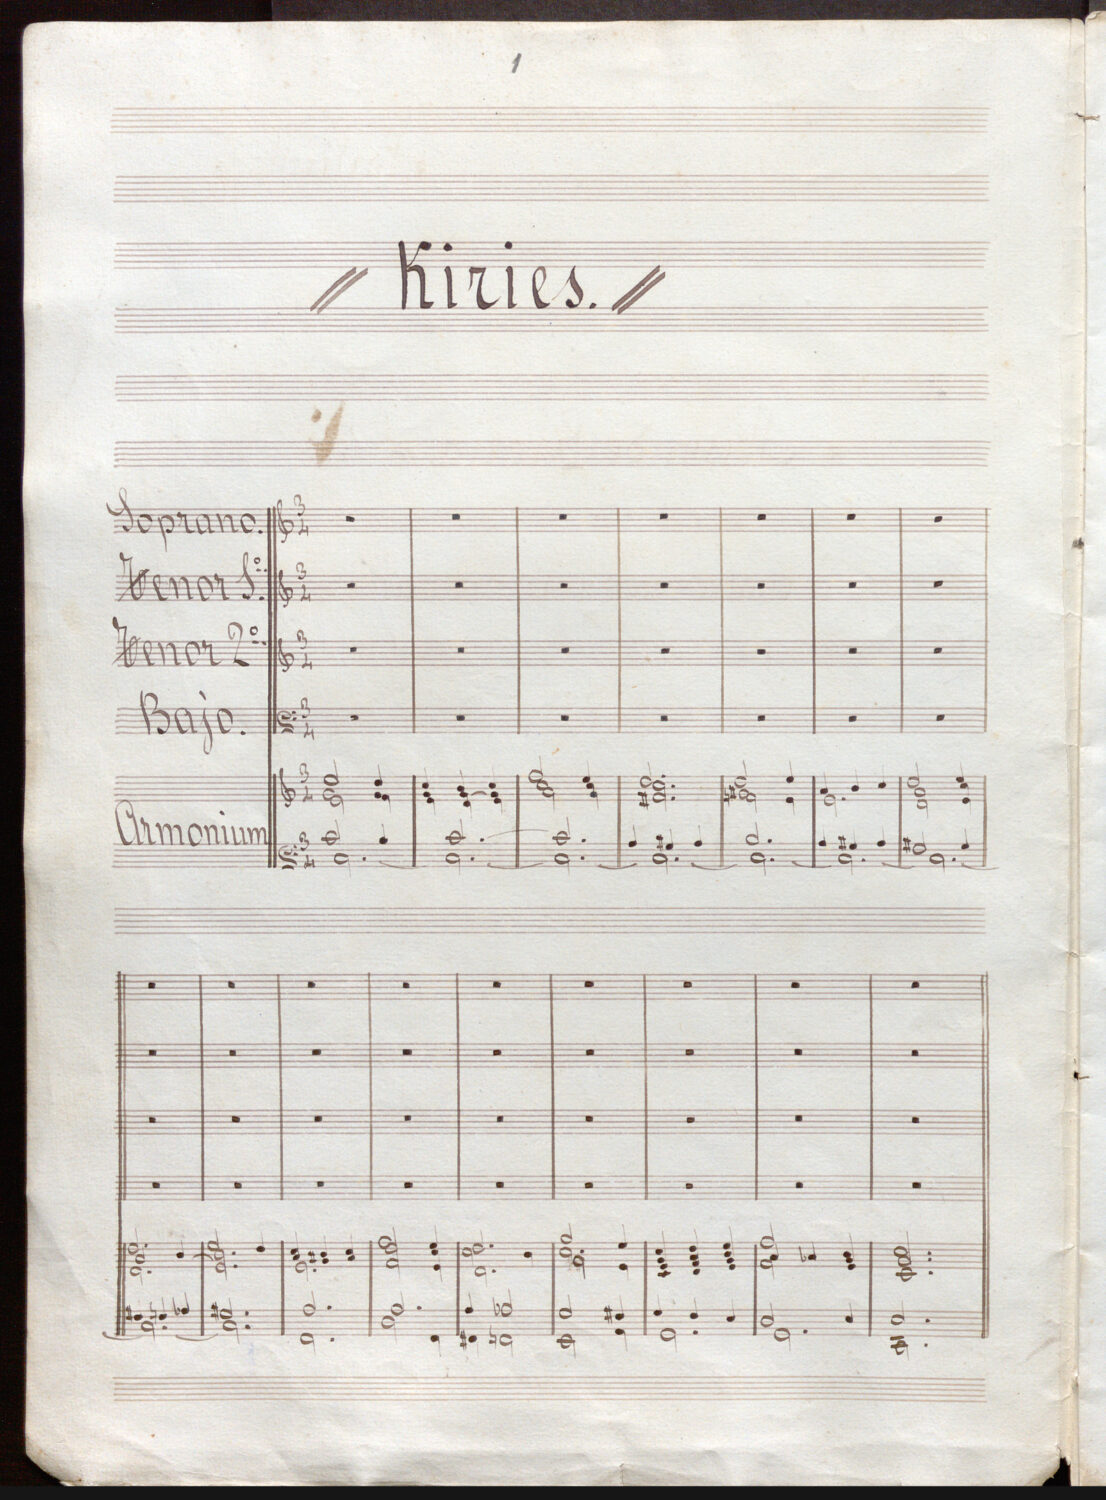 1
// Kiries. //
Soprano.
Tenor 1º.
Tenor 2º.
Bajo.
Armonium